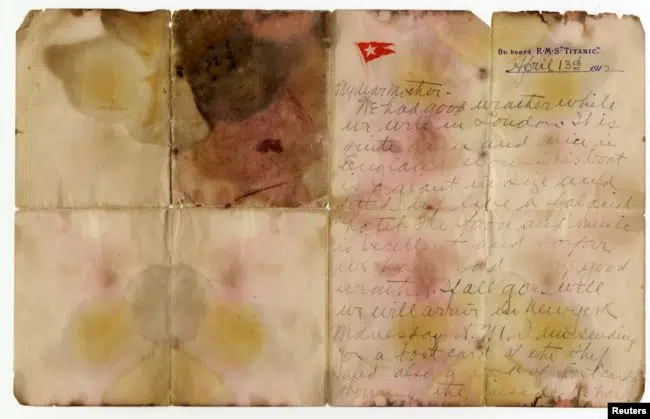 On board R·M·S "TITANIC".
April 13th 1912
My dear Mother-
We had good weather while
we were in London. It is
quite green and nice in
England now. This boat
is a giant in size and
fitted up like a palacial
hotel. The food and music
is excellent and so far
we have had good
weather. If all goes well
we will arrive in New York
Wednesday A.M. I am sending
you a post card of the ship
and also a book of post cards
showing the inside
Reuters